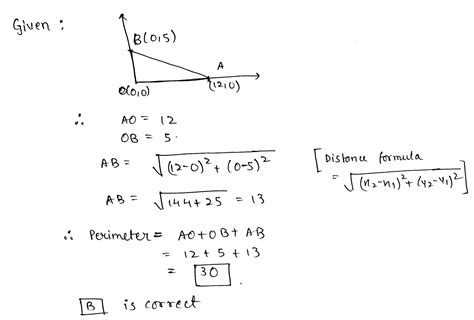 Given :
B(0,5)
A
O(0,0)
(12,0)
∴ AO = 12
OB = 5.
AB = √((12-0)² + (0-5)²)
[Distance formula
= √((x₂-x₁)² + (y₂-y₁)²)]
AB = √(144+25) = 13
∴ Perimeter = AO + OB + AB
= 12 + 5 + 13
= 30.
B is correct